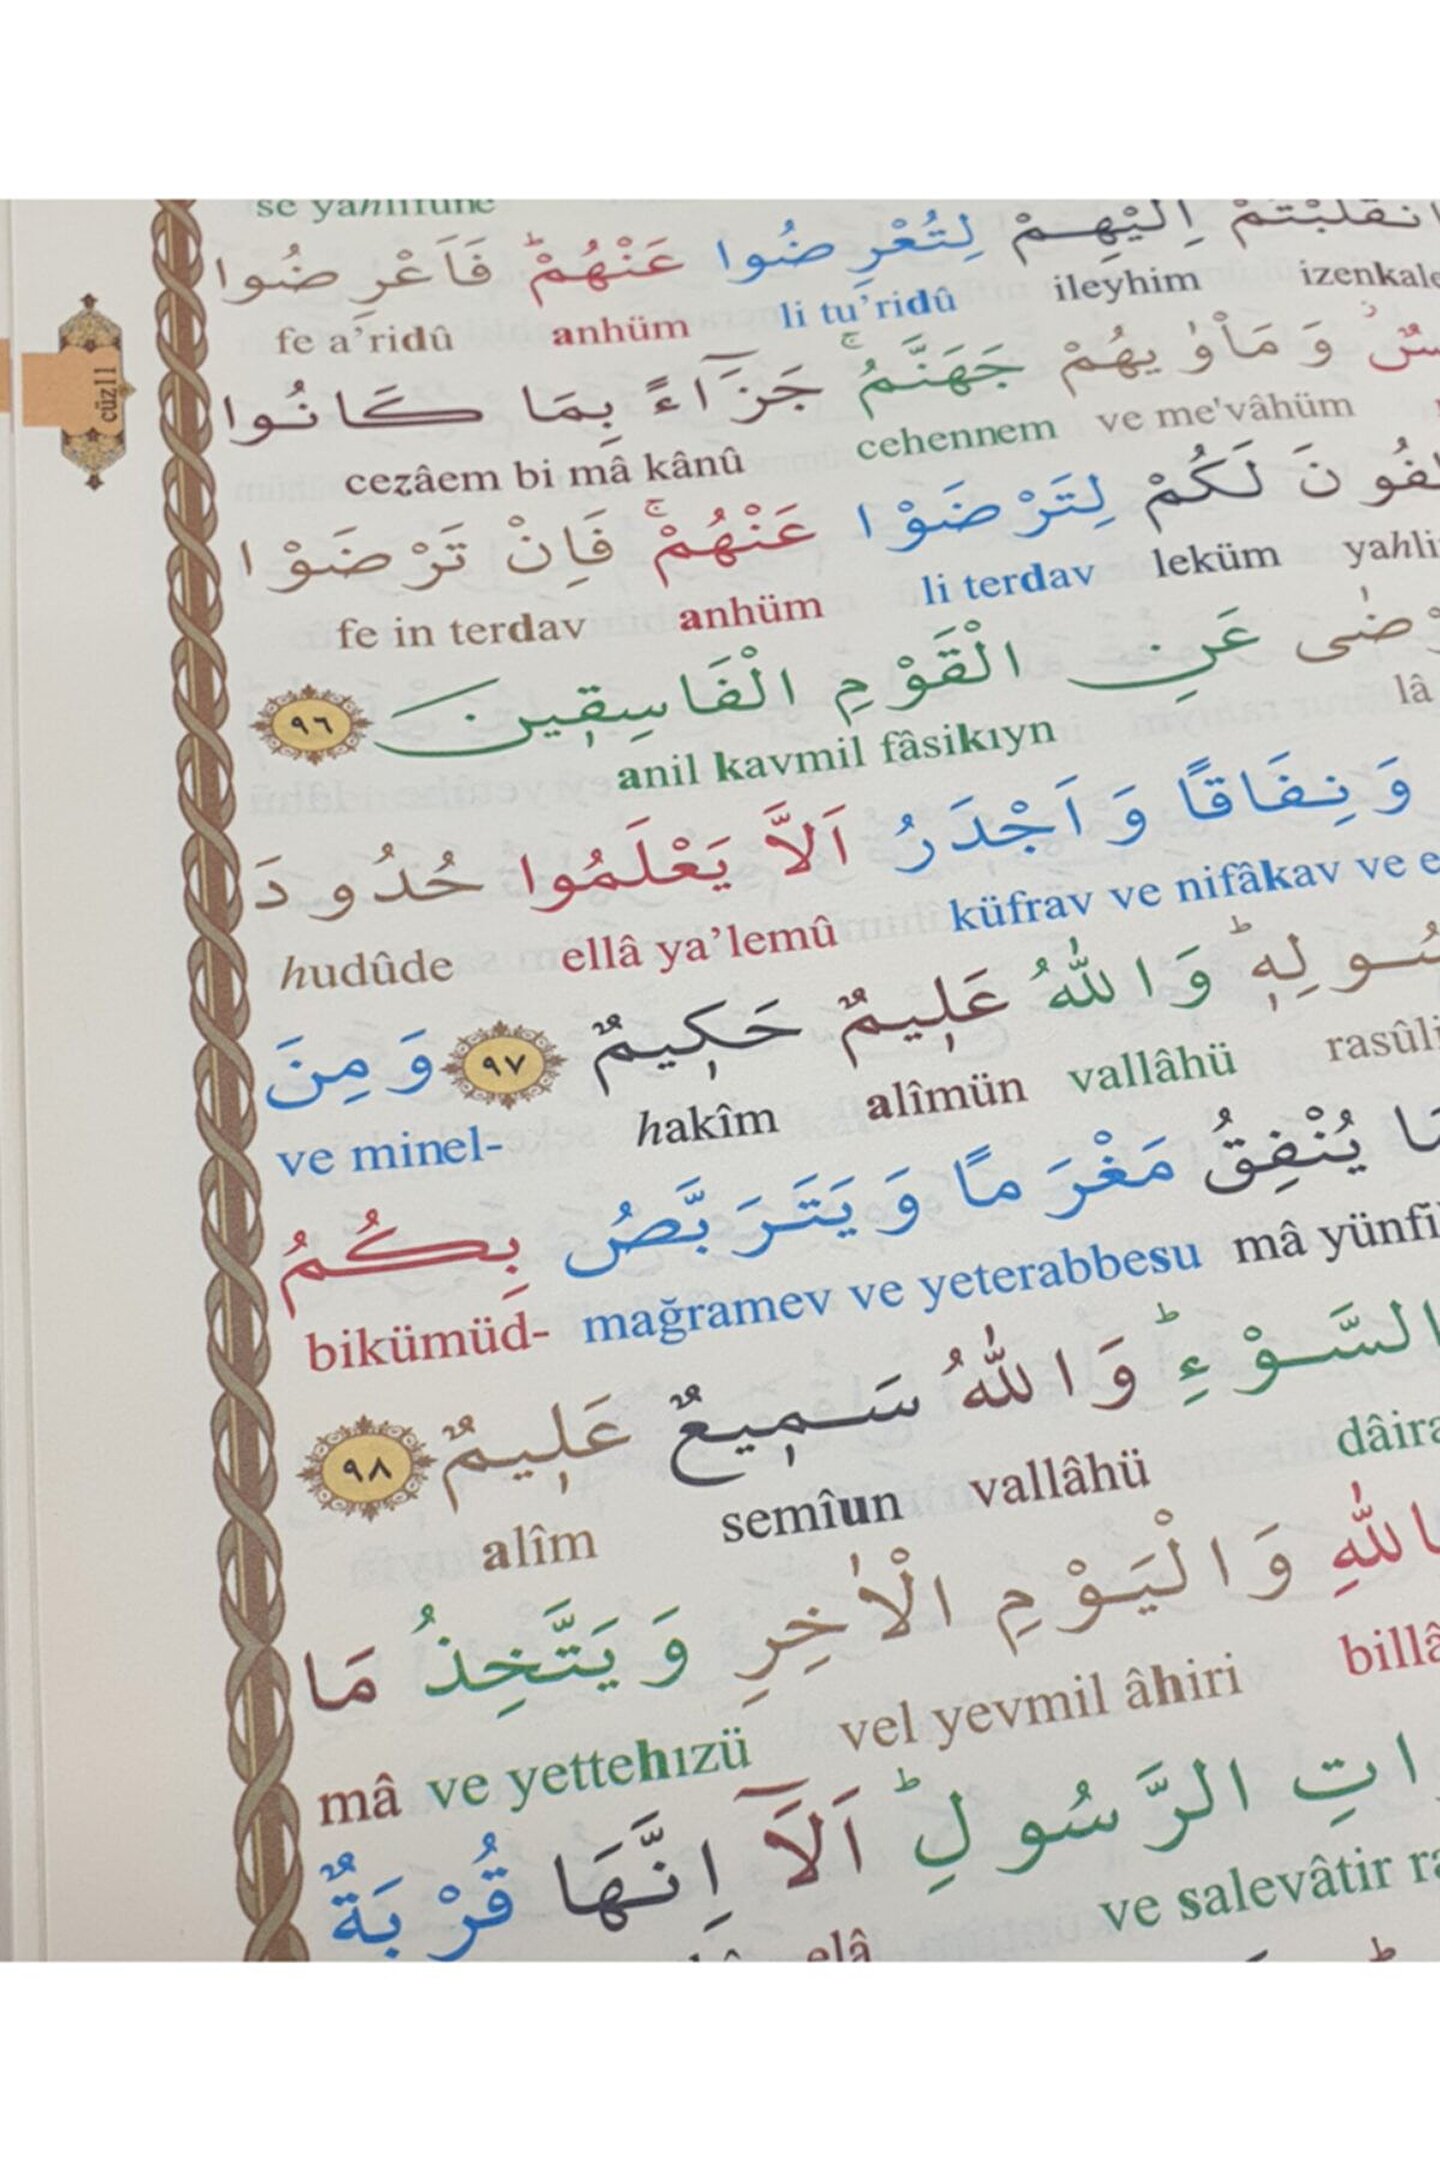 se yahlifûne
انْقَلَبْتُمْ اِلَيْهِمْ لِتُعْرِضُوا عَنْهُمْۜ فَاَعْرِضُوا
izenkale ileyhim li tu’ridû anhüm fe a’ridû
وَ مَاْوٰيهُمْ جَهَنَّمُۚ جَزَٓاءً بِمَا كَانُوا
ve me'vâhüm cehennem cezâem bi mâ kânû
لَكُمْ لِتَرْضَوْا عَنْهُمْۚ فَاِنْ تَرْضَوْا
yahli leküm li terdav anhüm fe in terdav
عَنِ الْقَوْمِ الْفَاسِقٖينَ ٩٦
lâ anil kavmil fâsikıyn
وَ نِفَاقًا وَ اَجْدَرُ اَلَّا يَعْلَمُوا حُدُودَ
küfrav ve nifâkav ve e ellâ ya’lemû hudûde
وَ اللّٰهُ عَلٖيمٌ حَكٖيمٌ ٩٧ وَ مِنَ
rasûli vallâhü alîmün hakîm ve minel-
يُنْفِقُ مَغْرَمًا وَ يَتَرَبَّصُ بِكُمُ
mâ yünfi mağramev ve yeterabbesu bikümüd-
السَّوْءِۜ وَ اللّٰهُ سَمٖيعٌ عَلٖيمٌ ٩٨
dâira vallâhü semîun alîm
وَ الْيَوْمِ الْاٰخِرِ وَ يَتَّخِذُ مَا
billâ vel yevmil âhiri ve yettehızü mâ
الرَّسُولِۜ اَلَٓا اِنَّهَا قُرْبَةٌ
ve salevâtir ra elâ
cüz11